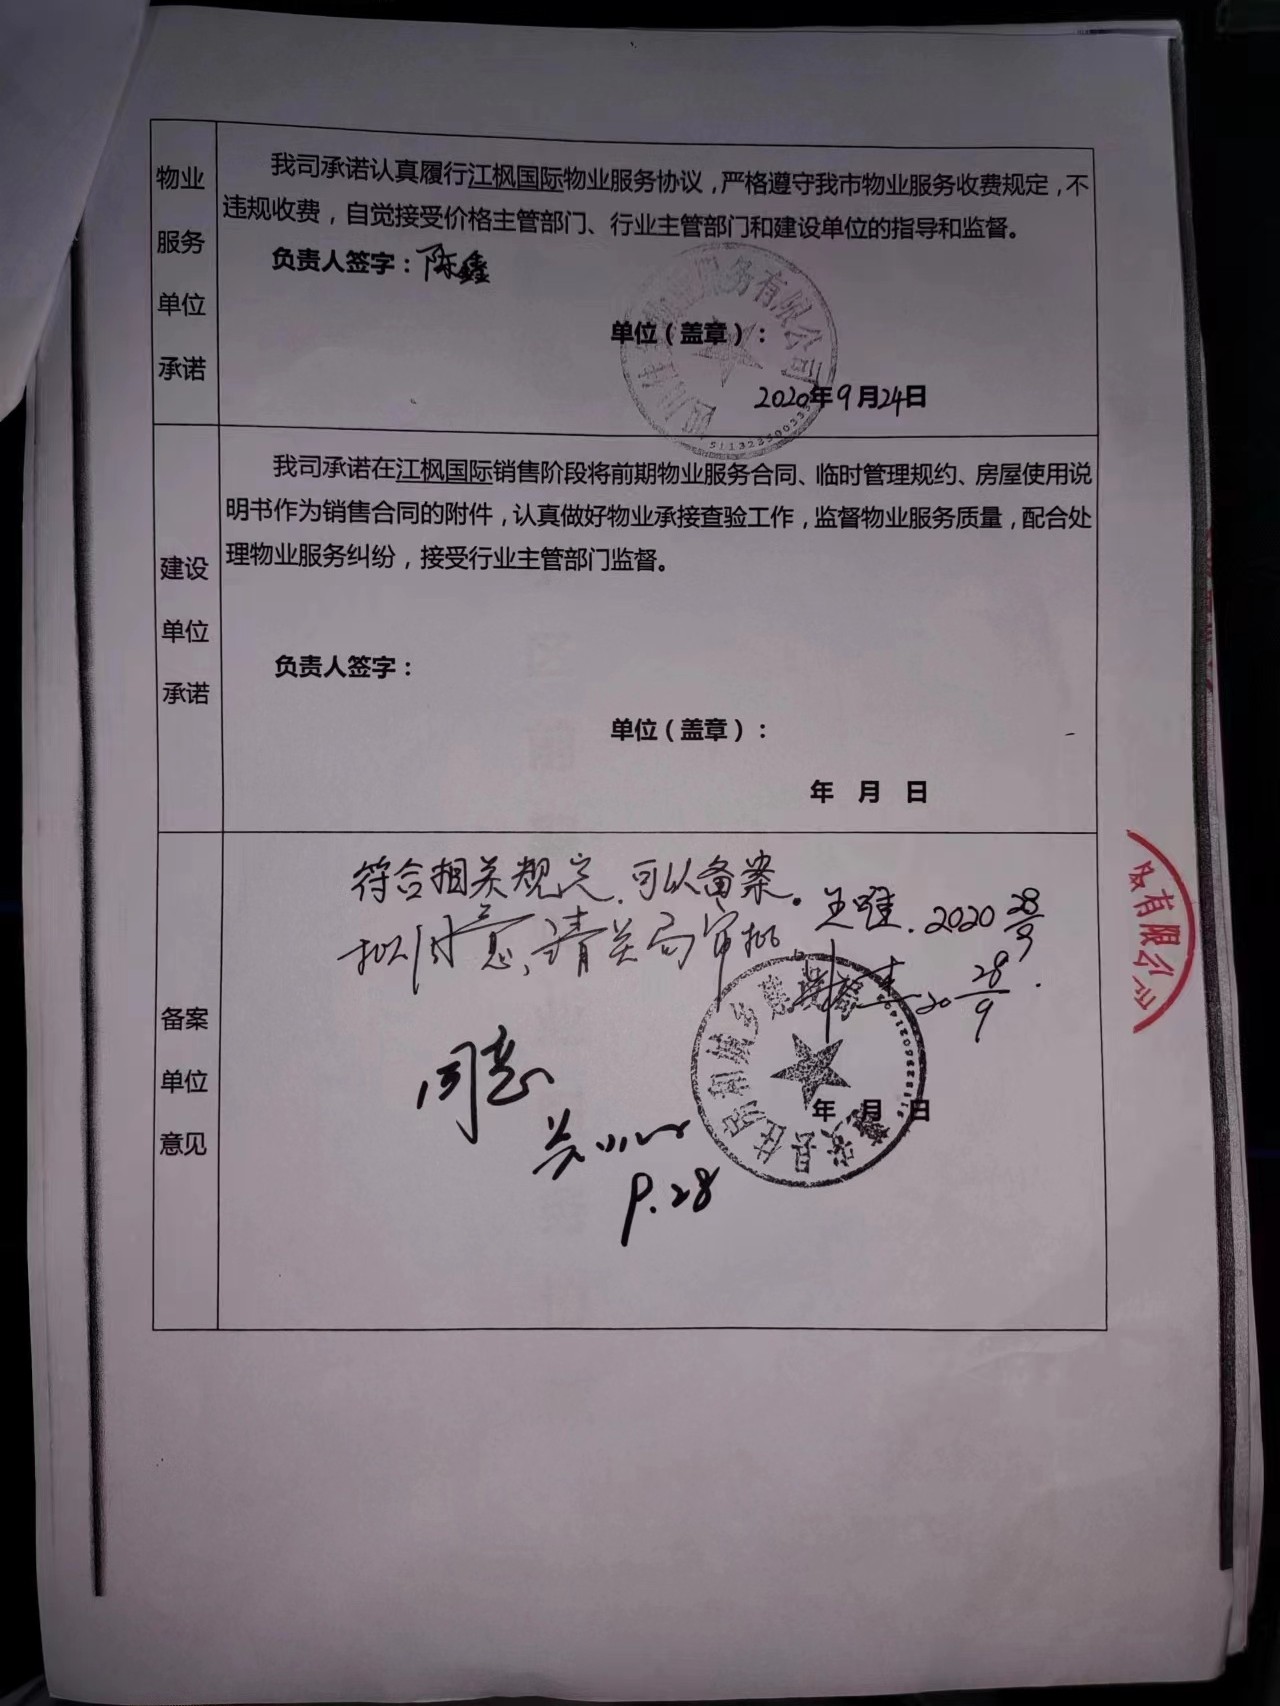 物业
服务
单位
承诺
我司承诺认真履行江枫国际物业服务协议，严格遵守我市物业服务收费规定，不
违规收费，自觉接受价格主管部门、行业主管部门和建设单位的指导和监督。
负责人签字：陈鑫
单位（盖章）：
物业服务有限公司
2020年9月24日
建设
单位
承诺
我司承诺在江枫国际销售阶段将前期物业服务合同、临时管理规约、房屋使用说
明书作为销售合同的附件，认真做好物业承接查验工作，监督物业服务质量，配合处
理物业服务纠纷，接受行业主管部门监督。
负责人签字：
单位（盖章）：
年 月 日
备案
单位
意见
符合相关规定，可以备案。
2020 28/9
拟同意，请关局审批
20 28/9
同意
9.28
安县住房和城乡建设
年 月 日
有限公司